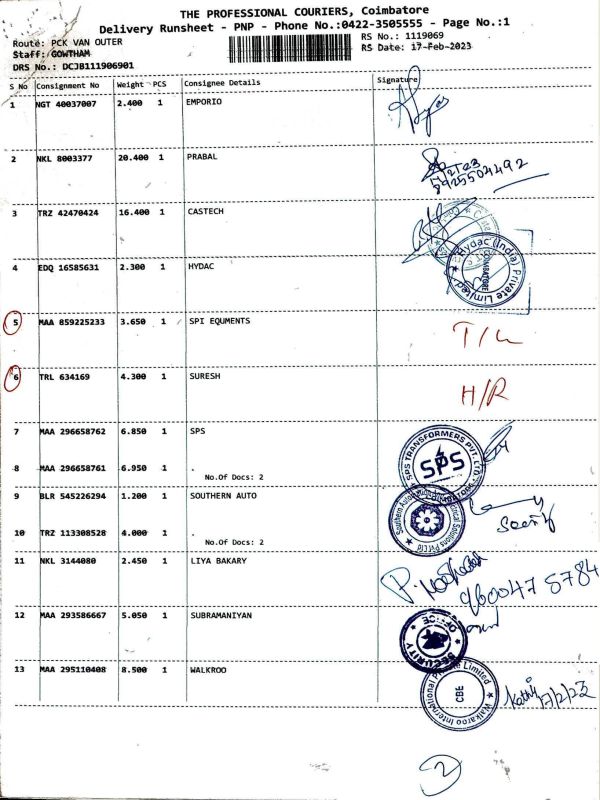 THE PROFESSIONAL COURIERS, Coimbatore
Delivery Runsheet - PNP - Phone No.:0422-3505555 - Page No.:1
Route: PCK VAN OUTER
RS No.: 1119069
Staff: GOWTHAM
RS Date: 17-Feb-2023
DRS No.: DCJB111906901
S No Consignment No Weight PCS Consignee Details Signature
1 NGT 40037007 2.400 1 EMPORIO
2 NKL 8003377 20.400 1 PRABAL
8925504492
3 TRZ 42470424 16.400 1 CASTECH
4 EDQ 16585631 2.300 1 HYDAC
Hydac (India) Private Limited
COIMBATORE
5 MAA 859225233 3.650 1 SPI EQUMENTS T/L
6 TRL 634169 4.300 1 SURESH H/R
7 MAA 296658762 6.850 1 SPS
SPS TRANSFORMERS PVT. LTD.
SPS
8 MAA 296658761 6.950 1 .
No.Of Docs: 2
9 BLR 545226294 1.200 1 SOUTHERN AUTO
Southern Auto Solutions Pvt Ltd
10 TRZ 113308528 4.000 1 .
No.Of Docs: 2
11 NKL 3144080 2.450 1 LIYA BAKARY
9600478784
12 MAA 293586667 5.050 1 SUBRAMANIYAN
OFFICE
SECURITY
13 MAA 295110408 8.500 1 WALKROO
Walkaroo International Private Limited
CBE
17/2/23
2